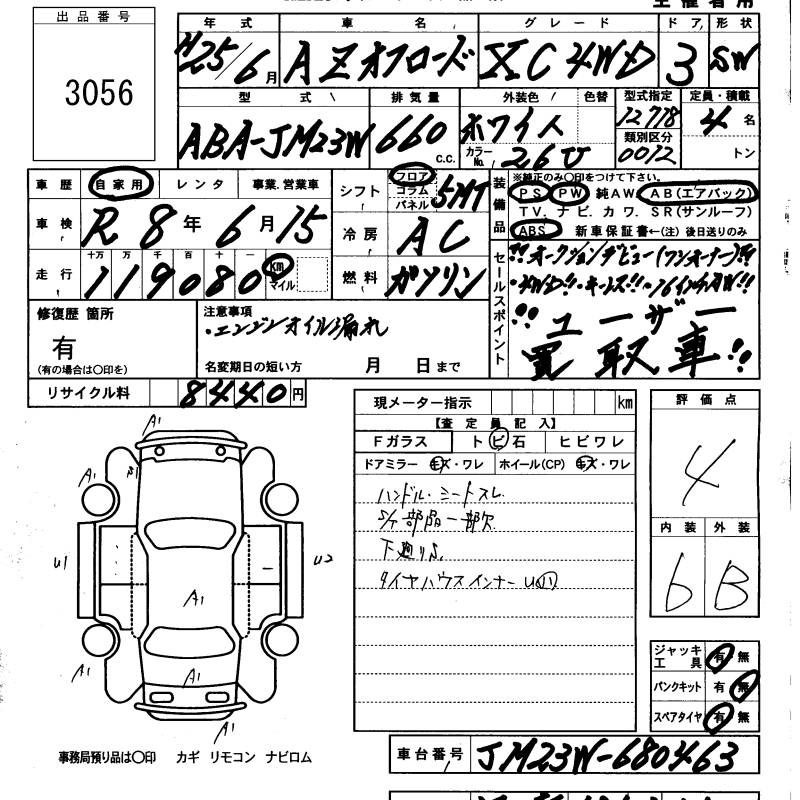 出品番号
3056
年式 車名 グレード ドア 形状
H25/6月 AZオフロード XC 4WD 3 SW
型式 排気量 外装色 色替 型式指定 定員・積載
ABA-JM23W 660 c.c. ホワイト 12778 4名
カラーNo. 26U 類別区分 0072 トン
車歴 自家用 レンタ 事業.営業車
シフト フロア コラム パネル 5MT
装備品
※純正のみ〇印をつけて下さい。
PS PW 純AW AB(エアバック)
TV. ナビ. カワ. SR(サンルーフ)
ABS 新車保証書←(注) 後日送りのみ
車検 R8年6月15
冷房 AC
走行 十万 万 千 百 十 一
119080 km マイル
燃料 ガソリン
セールスポイント
!!オークションデビュー(ワンオーナー)!!
・4WD!!・キーレス!!・16インチAW!!
!!ユーザー
買取車!!
修復歴 箇所
有
(有の場合は〇印を)
注意事項
・エンジンオイル漏れ
名変期日の短い方 月 日まで
リサイクル料 8440円
現メーター指示 km
【査定員記入】
Fガラス トビ石 ヒビワレ
ドアミラー キズ・ワレ ホイール(CP) キズ・ワレ
ハンドル・シートスレ
S/T部品一部欠
下廻りS
タイヤハウスインナーU小
評価点
4
内装 外装
6 B
A1
A1
A1
U1
U2
A1
A1
A1
A1
ジャッキ工具 有 無
パンクキット 有 無
スペアタイヤ 有 無
事務局預り品は〇印 カギ リモコン ナビロム
車台番号 JM23W-680463